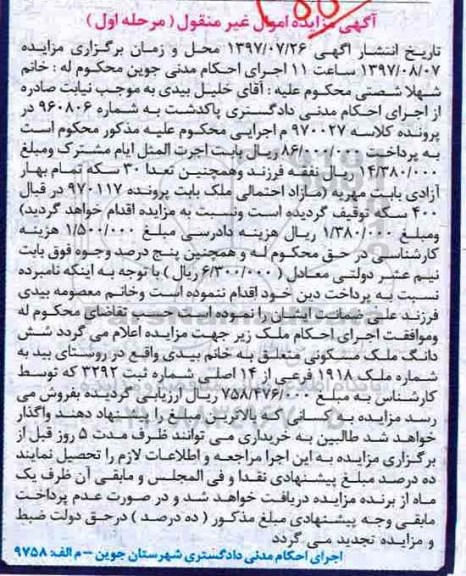 آگهی مزایده اموال غیر منقول ( مرحله اول )
تاریخ انتشار اگهی ۱۳۹۷/۰۷/۲۶ محل و زمان برگزاری مزایده
۱۳۹۷/۰۸/۰۷ ساعت ۱۱ اجرای احکام مدنی جوین محکوم له : خانم
شهلا شصتی محکوم علیه : آقای خلیل بیدی به موجب نیابت صادره
از اجرای احکام مدنی دادگستری پاکدشت به شماره ۹۶۰۸۰۶ در
پرونده کلاسه ۹۷۰۰۲۷ م اجرایی محکوم علیه مذکور محکوم است
به پرداخت ۸۶/۰۰۰/۰۰۰ ریال بابت اجرت المثل ایام مشترک ومبلغ
۱۴/۳۸۰/۰۰۰ ریال نفقه فرزند وهمچنین تعدا ۳۰ سکه تمام بهار
آزادی بابت مهریه (مازاد احتمالی ملک بابت پرونده ۹۷۰۱۱۷ در قبال
۴۰۰ سکه توقیف گردیده است ونسبت به مزایده اقدام خواهد گردید)
ومبلغ ۱/۳۸۰/۰۰۰ ریال هزینه دادرسی مبلغ ۱/۵۰۰/۰۰۰ هزینه
کارشناسی در حق محکوم له و همچنین پنج درصد وجوه فوق بابت
نیم عشر دولتی معادل ( ۶/۳۰۰/۰۰۰ ریال ) با توجه به اینکه نامبرده
نسبت به پرداخت دین خود اقدام ننموده است وخانم معصومه بیدی
فرزند علی ضمانت ایشان را نموده است حسب تقاضای محکوم له
وموافقت اجرای احکام ملک زیر جهت مزایده اعلام می گردد شش
دانگ ملک مسکونی متعلق به خانم بیدی واقع در روستای بید به
شماره ملک ۱۹۱۸ فرعی از ۱۴ اصلی شماره ثبت ۳۲۹۲ که توسط
کارشناس به مبلغ ۷۵۸/۴۷۶/۰۰۰ ریال ارزیابی گردیده بفروش می
رسد مزایده به کسانی که بالاترین مبلغ را پیشنهاد دهند واگذار
خواهد شد طالبین به خریداری می توانند ظرف مدت ۵ روز قبل از
برگزاری مزایده به این اجرا مراجعه و اطلاعات لازم را تحصیل نمایند
ده درصد مبلغ پیشنهادی نقدا و فی المجلس و مابقی آن ظرف یک
ماه از برنده مزایده دریافت خواهد شد و در صورت عدم پرداخت
مابقی وجه پیشنهادی مبلغ مذکور ( ده درصد ) درحق دولت ضبط
و مزایده تجدید می گردد
اجرای احکام مدنی دادگستری شهرستان جوین – م الف: ۹۷۵۸